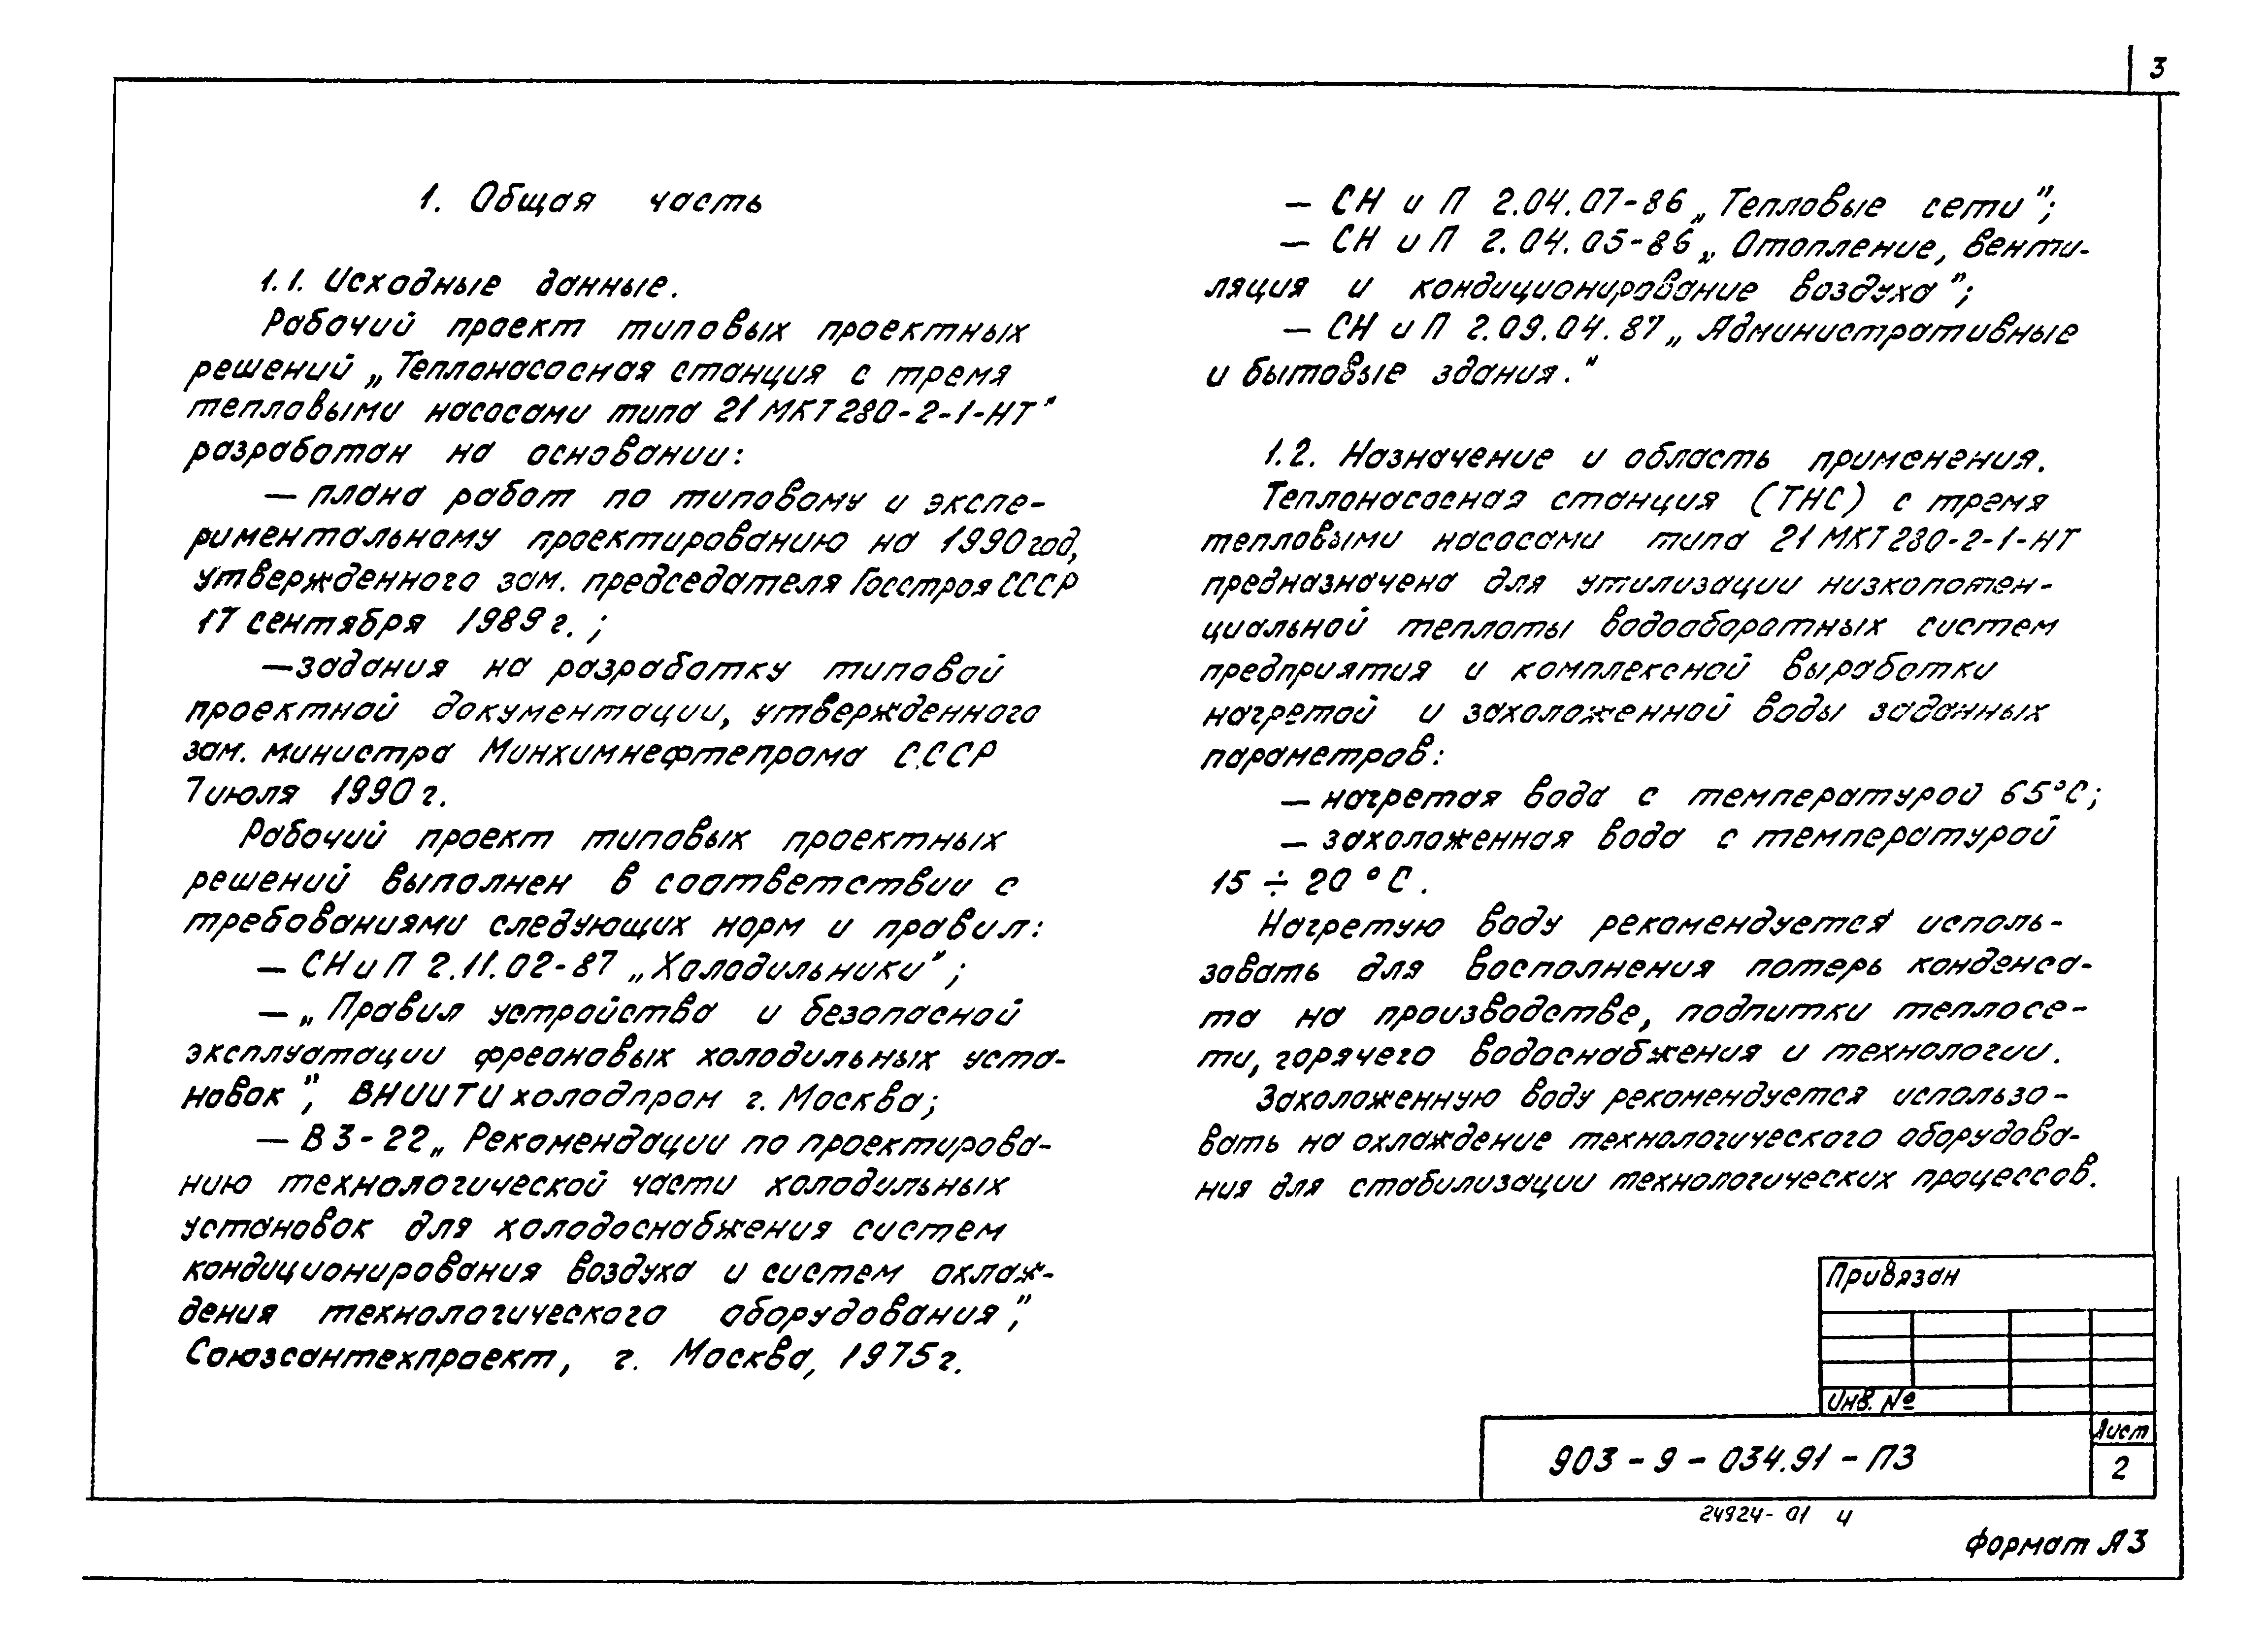 3
1. Общая часть
1.1. Исходные данные.
Рабочий проект типовых проектных
решений „Теплонасосная станция с тремя
тепловыми насосами типа 21 МКТ 280-2-1-НТ"
разработан на основании:
— плана работ по типовому и экспе-
риментальному проектированию на 1990 год,
утвержденного зам. председателя Госстроя СССР
17 сентября 1989 г. ;
— задания на разработку типовой
проектной документации, утвержденного
зам. министра Минхимнефтепрома СССР
7 июля 1990 г.
Рабочий проект типовых проектных
решений выполнен в соответствии с
требованиями следующих норм и правил:
— СН и П 2.11.02-87 „Холодильники" ;
— „Правил устройства и безопасной
эксплуатации фреоновых холодильных уста-
новок", ВНИИТИхолодпром г. Москва;
— В3-22 „Рекомендации по проектирова-
нию технологической части холодильных
установок для холодоснабжения систем
кондиционирования воздуха и систем охлаж-
дения технологического оборудования",
Союзсантехпроект, г. Москва, 1975 г.
— СН и П 2.04.07-86 „Тепловые сети";
— СН и П 2.04.05-86 „Отопление, венти-
ляция и кондиционирование воздуха";
— СН и П 2.09.04.87 „Административные
и бытовые здания."
1.2. Назначение и область применения.
Теплонасосная станция (ТНС) с тремя
тепловыми насосами типа 21 МКТ 280-2-1-НТ
предназначена для утилизации низкопотен-
циальной теплоты водооборотных систем
предприятия и комплексной выработки
нагретой и захоложенной воды заданных
параметров:
— нагретая вода с температурой 65°С;
— захоложенная вода с температурой
15 ÷ 20 °С.
Нагретую воду рекомендуется исполь-
зовать для восполнения потерь конденса-
та на производстве, подпитки теплосе-
ти, горячего водоснабжения и технологии.
Захоложенную воду рекомендуется использо-
вать на охлаждение технологического оборудова-
ния для стабилизации технологических процессов.
Привязан
Инв. №
903 - 9 - 034.91 - ПЗ
Лист
2
24924-01 4
Формат А3